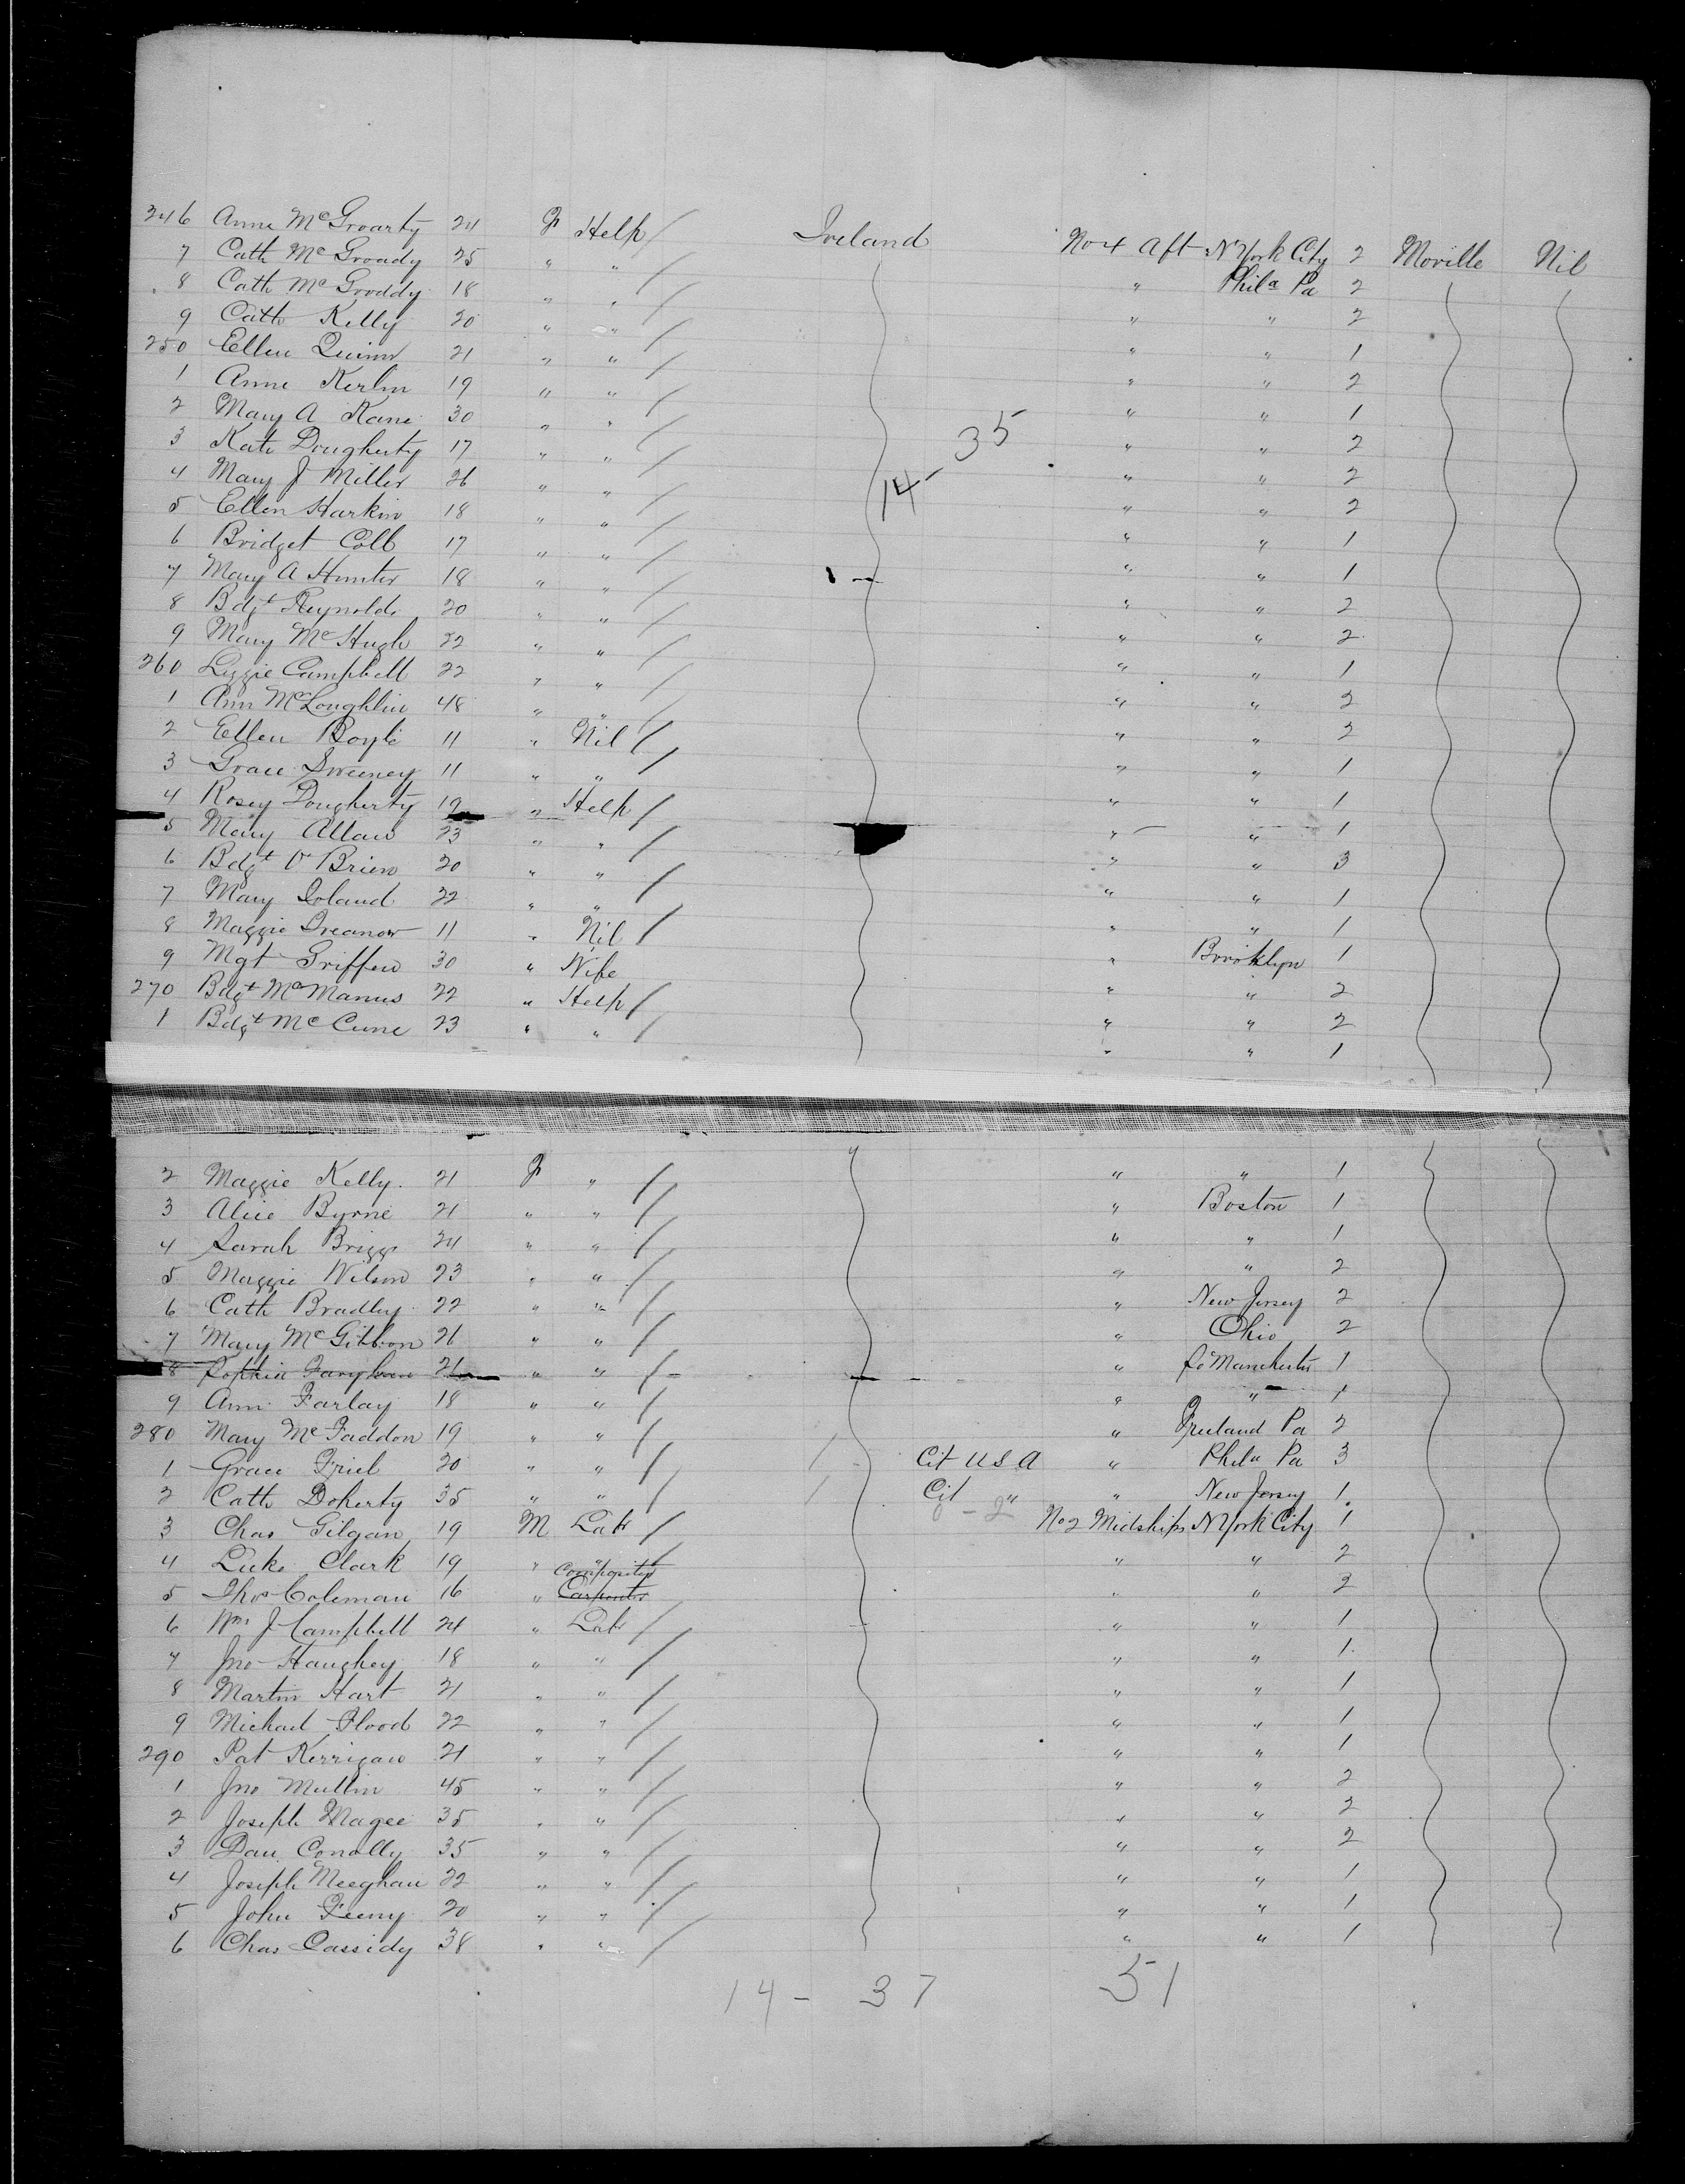 246 Anne McGroarty 24 F Help / Ireland No 4 Aft N York City 2 Moville Nil
7 Cath McGroady 25 " " / " Phila Pa 2
8 Cath McGroddy 18 " " / " " 2
9 Cath Kelly 20 " " / " " 1
250 Ellen Quinn 21 " " / " " 2
1 Anne Kerlin 19 " " / " " 1
2 Mary A Kane 30 " " / " " 2
3 Kate Dougherty 17 " " / 35 " " 2
4 Mary J Miller 26 " " / 14- " " 2
5 Ellen Harkin 18 " " / " " 1
6 Bridget Coll 17 " " / " " 1
7 Mary A Hunter 18 " " / " " 2
8 Bdgt Reynolds 20 " " / " " 2
9 Mary McHugh 22 " " / " " 1
260 Lizzie Campbell 22 " " / " " 2
1 Ann McLoughlin 48 " " / " " 2
2 Ellen Boyle 11 " Nil / " " 1
3 Grace Sweeney 11 " " / " " 1
4 Rosey Dougherty 19 " Help / " " 1
5 Mary Allan 23 " " / " " 3
6 Bdgt O'Brien 20 " " / " " 1
7 Mary Boland 22 " " / " " 1
8 Maggie Dreanor 11 " Nil / " Brooklyn 1
9 Mgt Griffen 30 " Wife " " 2
270 Bdgt McManus 22 " Help / " " 2
1 Bdgt McCune 23 " " / " " 1
2 Maggie Kelly 21 F " / " " 1
3 Alice Byrne 21 " " / " Boston 1
4 Sarah Briggs 24 " " / " " 1
5 Maggie Wilson 23 " " / " " 2
6 Cath Bradley 22 " " / " New Jersey 2
7 Mary McGibbon 26 " " / " Ohio 2
8 Sophia 21 " " / " So Manchester 1
9 Ann Farlay 18 " " / " " 1
280 Mary McFaddon 19 " " / " Freeland Pa 2
1 Grace Friel 20 " " / 1 Cit U S A " Phila Pa 3
2 Cath Doherty 35 " " / 1 Cit " " New Jersey 1
3 Chas Gilgan 19 M Labr / 0 - 2 No 2 Midships N York City 1
4 Luke Clark 19 " " / " " 2
5 Thos Coleman 16 " Compositor Carpenter " " 2
6 Wm J Campbell 24 " Labr / " " 1
7 Jno Haughey 18 " " / " " 1
8 Martin Hart 21 " " / " " 1
9 Michael Flood 22 " " / " " 1
290 Pat Kerrigan 21 " " / " " 1
1 Jno Mullin 45 " " / " " 2
2 Joseph Magee 35 " " / " " 2
3 Dan Conolly 35 " " / " " 2
4 Joseph Meeghan 22 " " / " " 1
5 John Feeny 20 " " / " " 1
6 Chas Cassidy 38 " " / " " 1
14 - 37 51